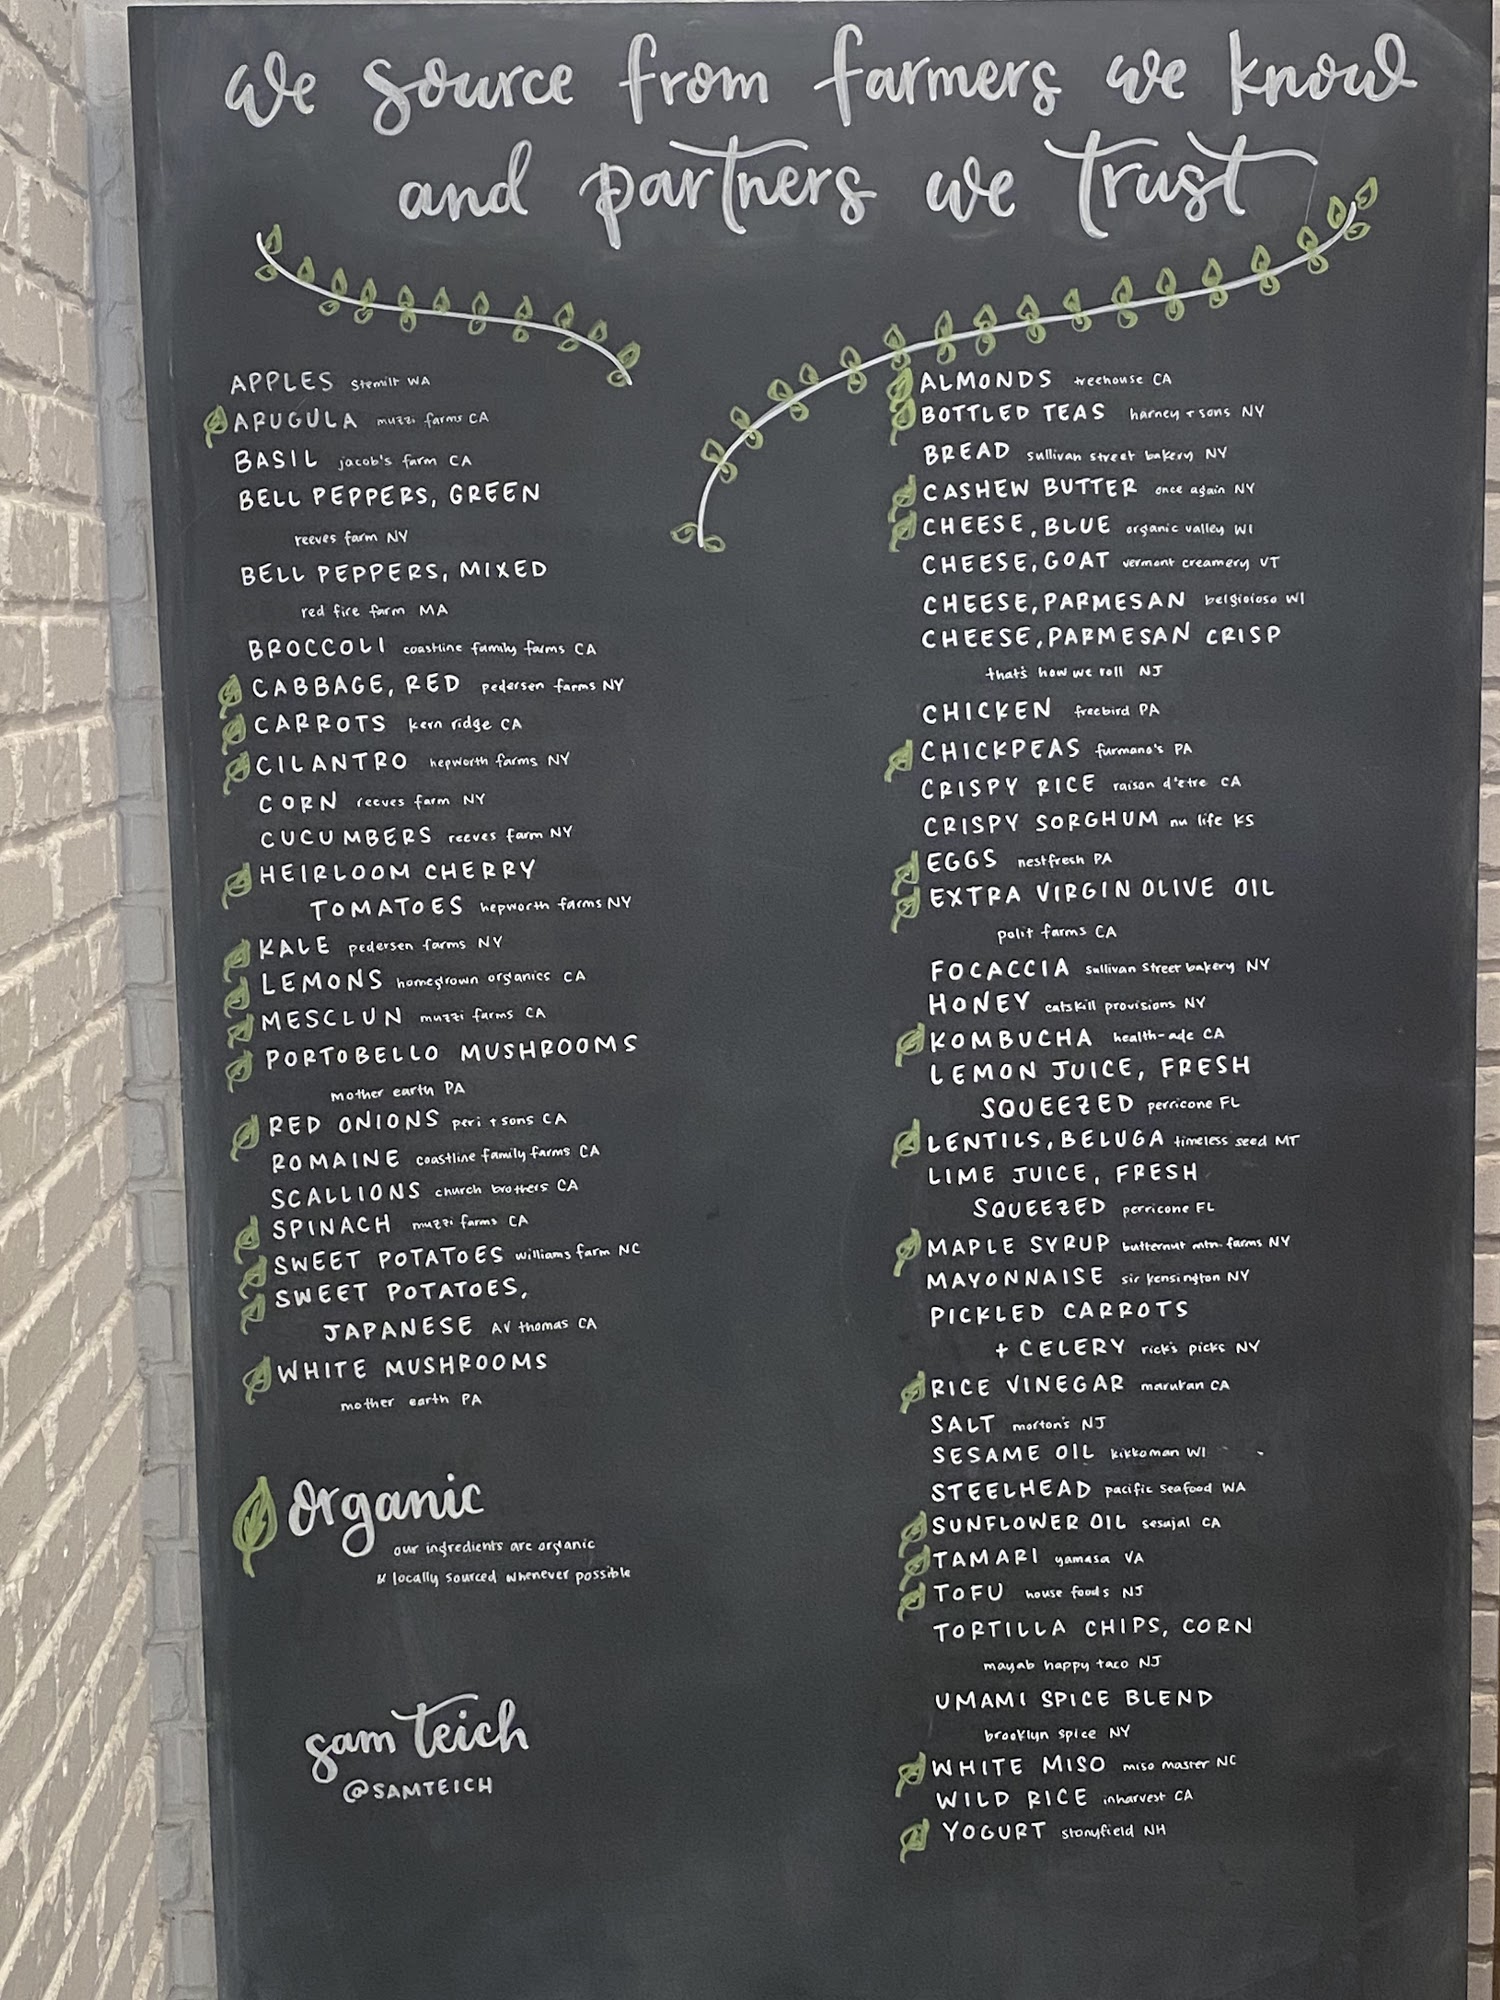 we source from farmers we know
and partners we trust
APPLES stemilt WA
ARUGULA muzzi farms CA
BASIL jacob's farm CA
BELL PEPPERS, GREEN
reeves farm NY
BELL PEPPERS, MIXED
red fire farm MA
BROCCOLI coastline family farms CA
CABBAGE, RED pedersen farms NY
CARROTS kern ridge CA
CILANTRO hepworth farms NY
CORN reeves farm NY
CUCUMBERS reeves farm NY
HEIRLOOM CHERRY
TOMATOES hepworth farms NY
KALE pedersen farms NY
LEMONS homegrown organics CA
MESCLUN muzzi farms CA
PORTOBELLO MUSHROOMS
mother earth PA
RED ONIONS peri + sons CA
ROMAINE coastline family farms CA
SCALLIONS church brothers CA
SPINACH muzzi farms CA
SWEET POTATOES williams farm NC
SWEET POTATOES,
JAPANESE AV thomas CA
WHITE MUSHROOMS
mother earth PA
organic
our ingredients are organic
& locally sourced whenever possible
sam teich
@SAMTEICH
ALMONDS treehouse CA
BOTTLED TEAS harney + sons NY
BREAD sullivan street bakery NY
CASHEW BUTTER once again NY
CHEESE, BLUE organic valley WI
CHEESE, GOAT vermont creamery VT
CHEESE, PARMESAN belgioioso WI
CHEESE, PARMESAN CRISP
that's how we roll NJ
CHICKEN freebird PA
CHICKPEAS furmano's PA
CRISPY RICE raison d'etre CA
CRISPY SORGHUM nu life KS
EGGS nestfresh PA
EXTRA VIRGIN OLIVE OIL
polit farms CA
FOCACCIA sullivan street bakery NY
HONEY catskill provisions NY
KOMBUCHA health-ade CA
LEMON JUICE, FRESH
SQUEEZED perricone FL
LENTILS, BELUGA timeless seed MT
LIME JUICE, FRESH
SQUEEZED perricone FL
MAPLE SYRUP butternut mtn. farms NY
MAYONNAISE sir kensington NY
PICKLED CARROTS
+ CELERY rick's picks NY
RICE VINEGAR marukan CA
SALT morton's NJ
SESAME OIL kikkoman WI
STEELHEAD pacific seafood WA
SUNFLOWER OIL sesajal CA
TAMARI yamasa VA
TOFU house foods NJ
TORTILLA CHIPS, CORN
mayab happy taco NJ
UMAMI SPICE BLEND
brooklyn spice NY
WHITE MISO miso master NC
WILD RICE inharvest CA
YOGURT stonyfield NH